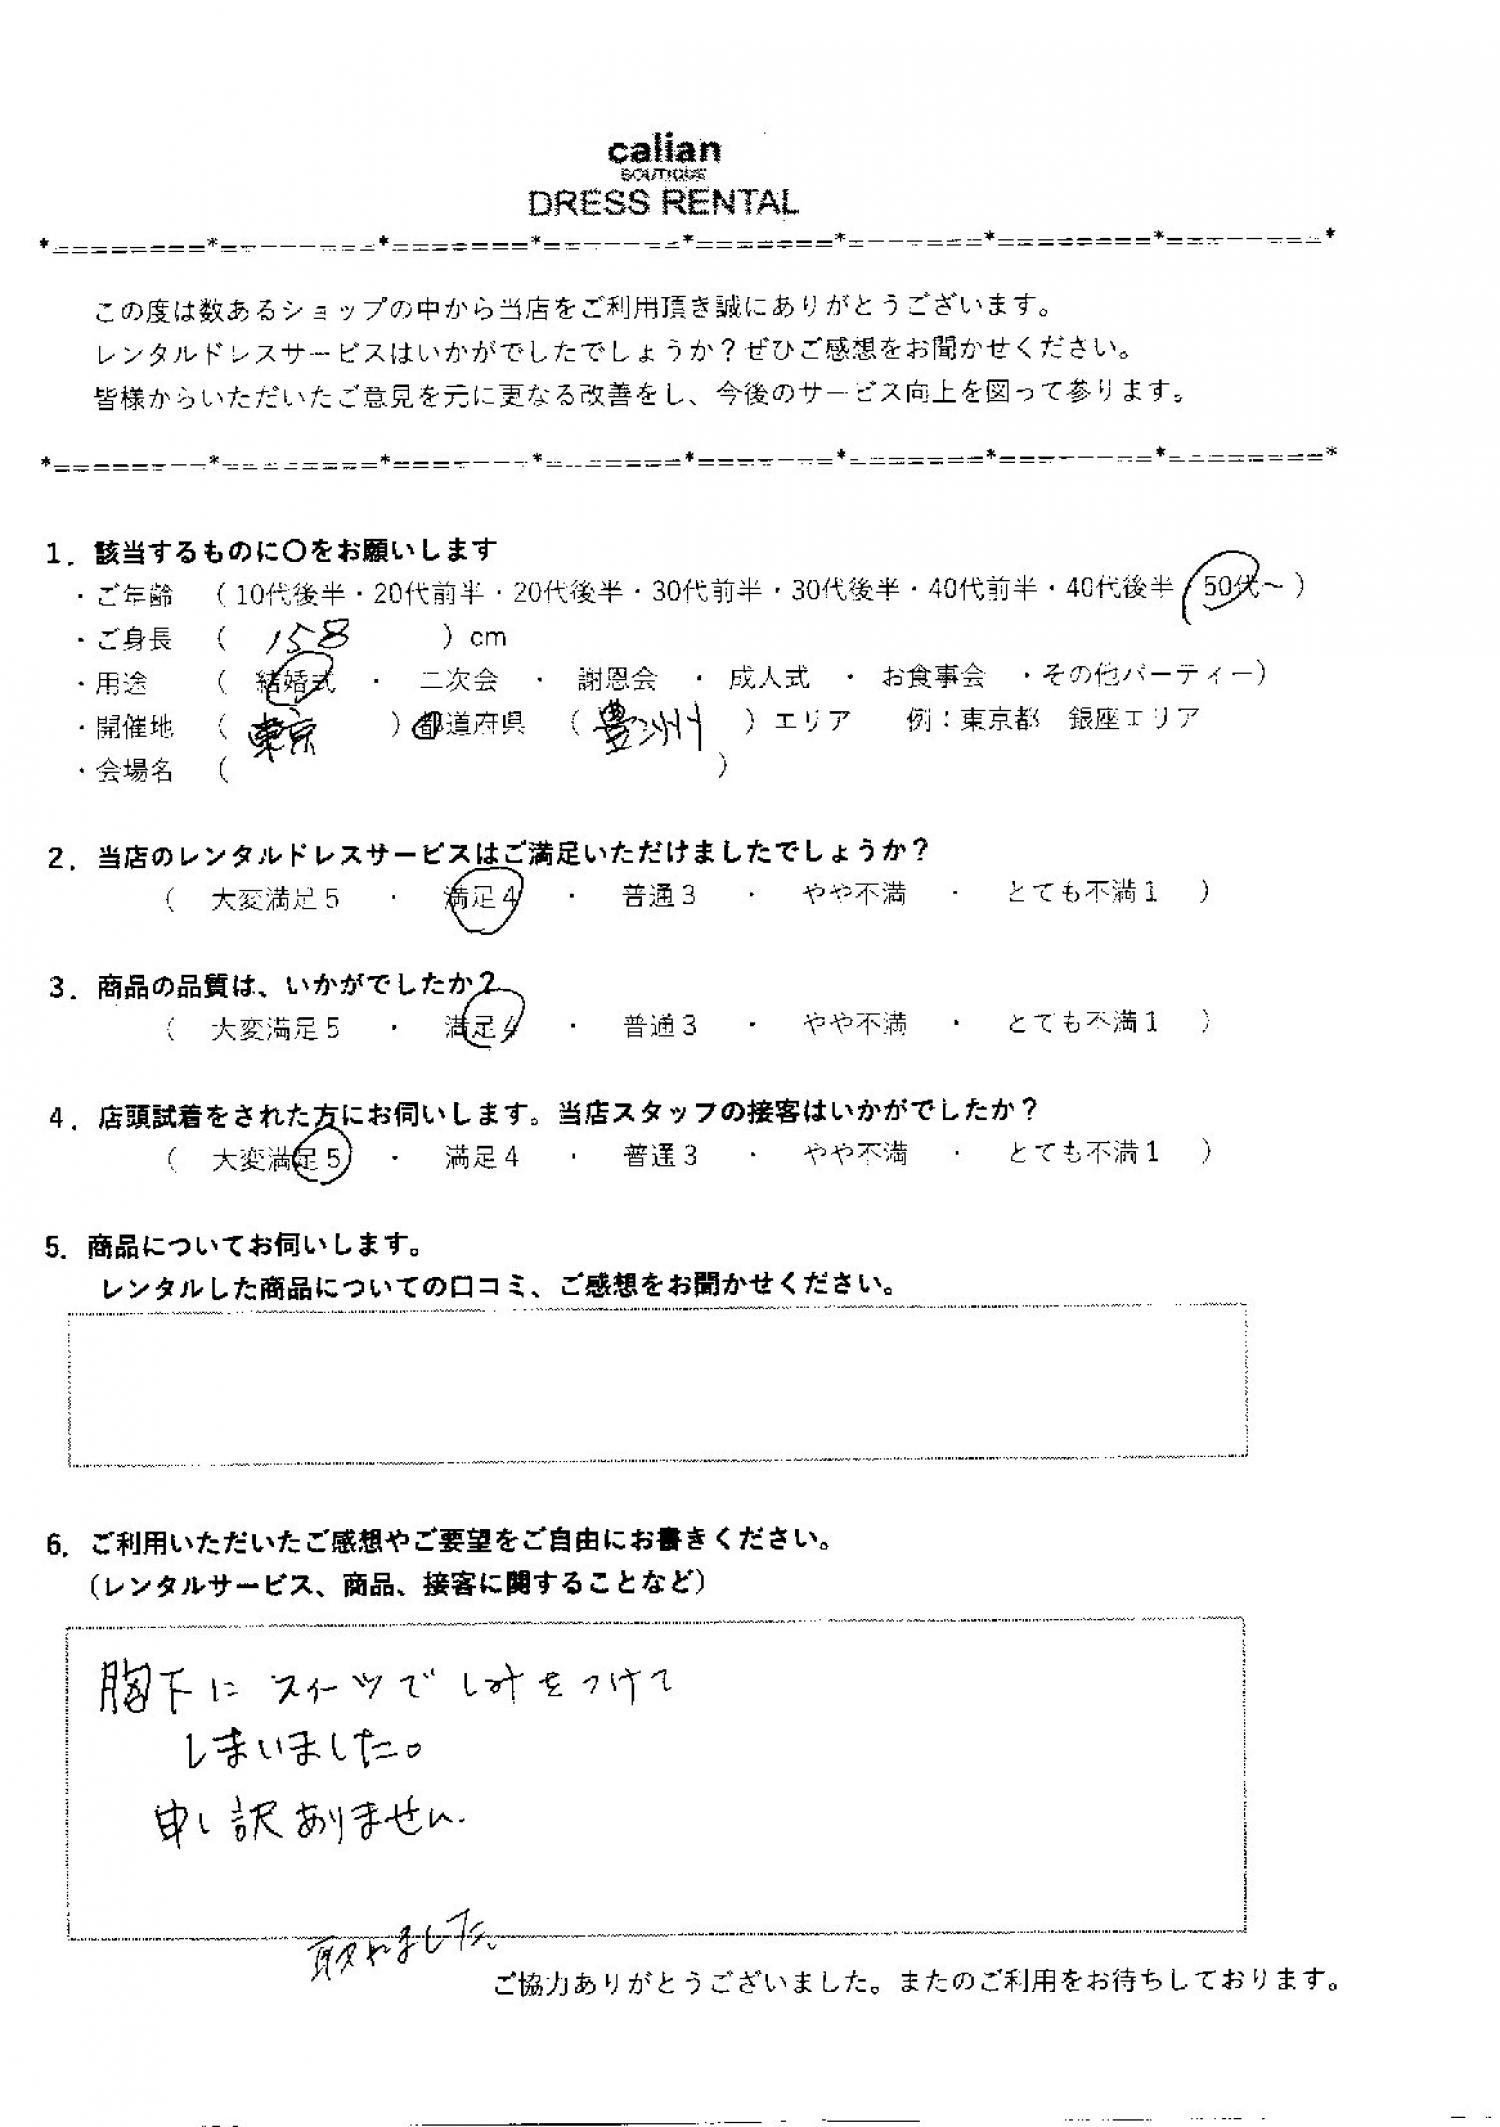 calian
BOUTIQUE
DRESS RENTAL
この度は数あるショップの中から当店をご利用頂き誠にありがとうございます。
レンタルドレスサービスはいかがでしたでしょうか？ぜひご感想をお聞かせください。
皆様からいただいたご意見を元に更なる改善をし、今後のサービス向上を図って参ります。
1．該当するものに〇をお願いします
・ご年齢 （10代後半・20代前半・20代後半・30代前半・30代後半・40代前半・40代後半 50代～）
・ご身長 （ 158 ）cm
・用途 （ 結婚式 ・ 二次会 ・ 謝恩会 ・ 成人式 ・ お食事会 ・その他パーティー）
・開催地 （ 東京 ）都道府県 （ 豊洲 ）エリア 例：東京都 銀座エリア
・会場名 （ ）
2．当店のレンタルドレスサービスはご満足いただけましたでしょうか？
（ 大変満足５ ・ 満足４ ・ 普通３ ・ やや不満 ・ とても不満１ ）
3．商品の品質は、いかがでしたか？
（ 大変満足５ ・ 満足４ ・ 普通３ ・ やや不満 ・ とても不満１ ）
4．店頭試着をされた方にお伺いします。当店スタッフの接客はいかがでしたか？
（ 大変満足５ ・ 満足４ ・ 普通３ ・ やや不満 ・ とても不満１ ）
5．商品についてお伺いします。
レンタルした商品についての口コミ、ご感想をお聞かせください。
6．ご利用いただいたご感想やご要望をご自由にお書きください。
（レンタルサービス、商品、接客に関することなど）
胸下に スイーツで しみをつけて
しまいました。
申し訳ありません.
取れました。
ご協力ありがとうございました。またのご利用をお待ちしております。